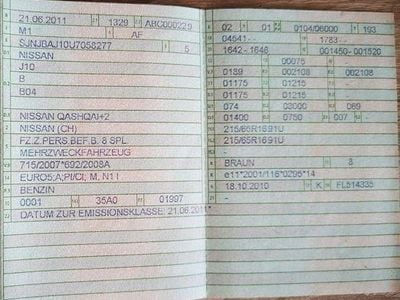 21.06.2011 1329 ABC000229
M1 AF
SJNJBAJ10U7058277 5
NISSAN
J10
B
B04
NISSAN QASHQAI+2
NISSAN (CH)
FZ.Z.PERS.BEF.B. 8 SPL.
MEHRZWECKFAHRZEUG
715/2007*692/2008A
EURO5;A;PI/CI; M, N1 I
BENZIN
0001 35A0 01997
DATUM ZUR EMISSIONSKLASSE: 21.06.2011*
02 01 0104/06000 193
04541-- 1783--
1642-1646 001450-001520
00075
0139 002108 002108
01175 01215
01175 01215
074 03000 069
01400 0750 007 -
215/65R1691U
215/65R1691U
-
BRAUN 8
e11*2001/116*0295*14
18.10.2010 K FL514335
-